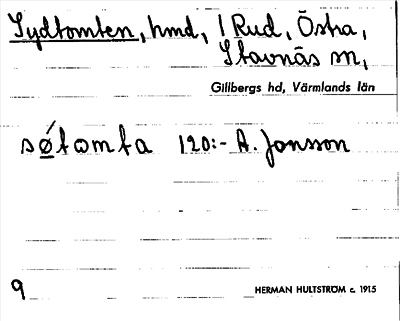 Sydtomten, hmd, 1 Rud, Östra,
Stavnäs sn,
Gillbergs hd, Värmlands län
sǿtomta 120:- A. Jonsson
9
HERMAN HULTSTRÖM c. 1915